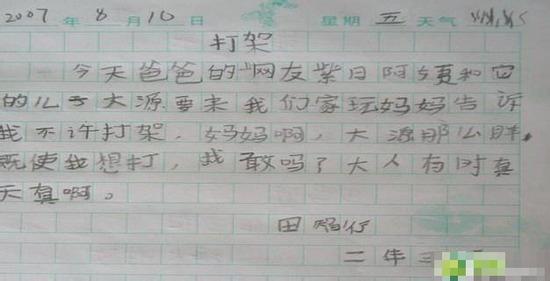 2007年8月10日 星期五天气
打架
今天爸爸的网友紫日阿姨和它
的儿子大源要来我们家玩妈妈告诉
我不许打架,妈妈啊,大源那么胖,
既使我想打,我敢吗?大人有时真
天真啊。
田
二年三